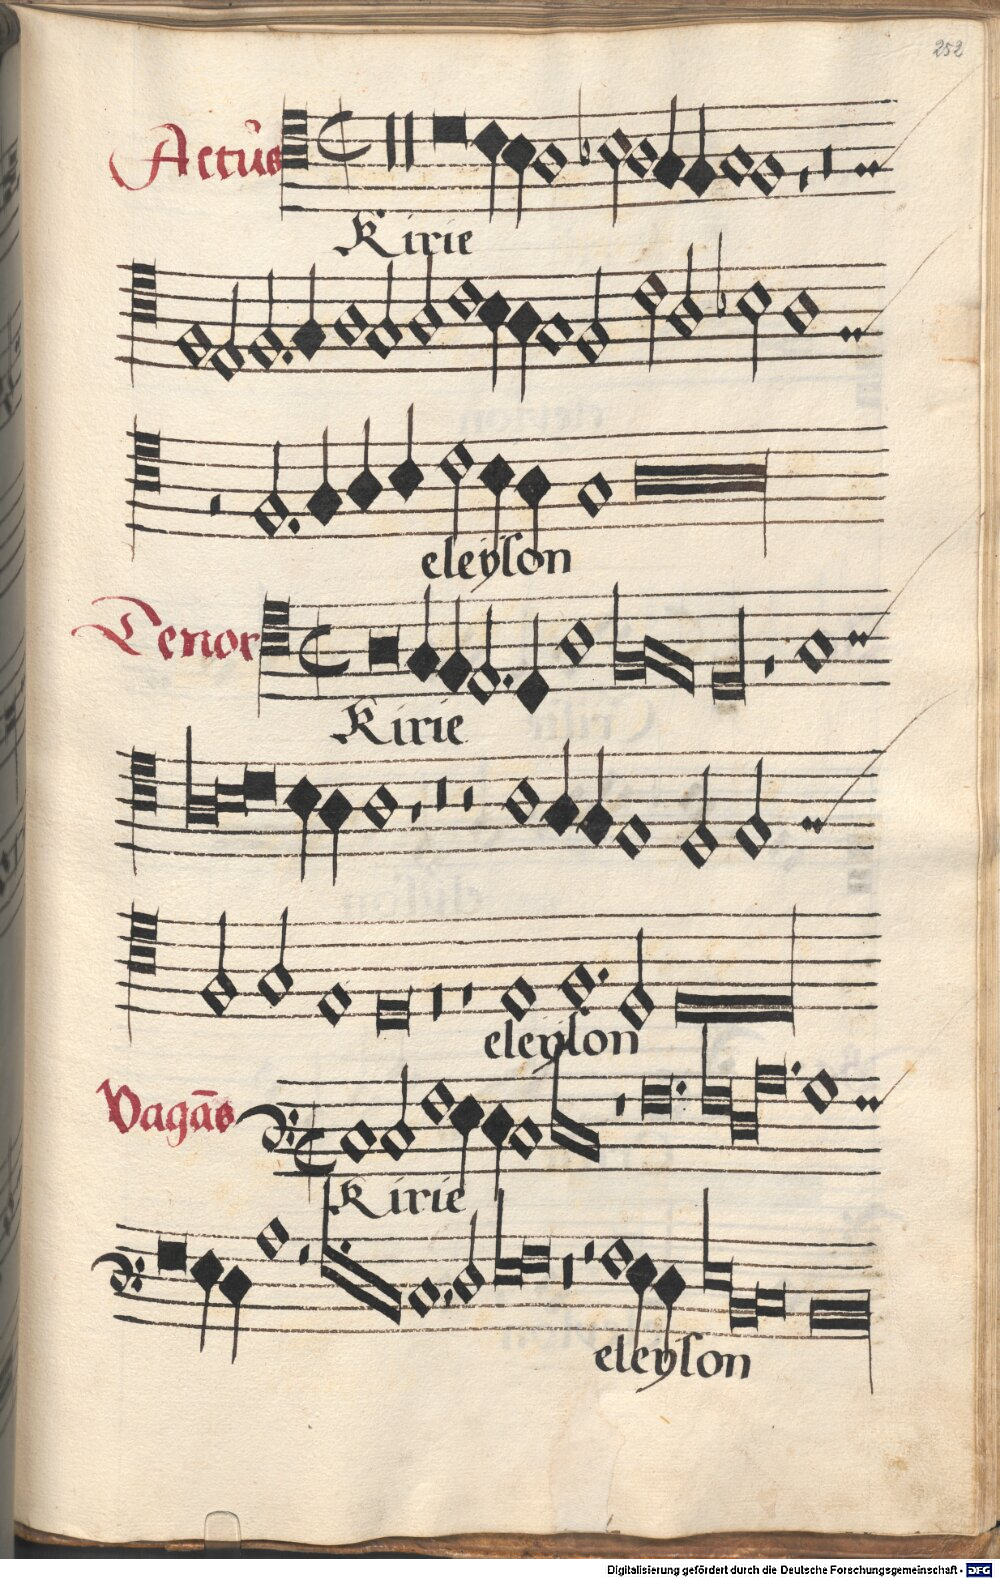 252
Altus
Kirie
eleyson
Tenor
Kirie
eleyson
Vagās
Kirie
eleyson
Digitalisierung gefördert durch die Deutsche Forschungsgemeinschaft - DFG